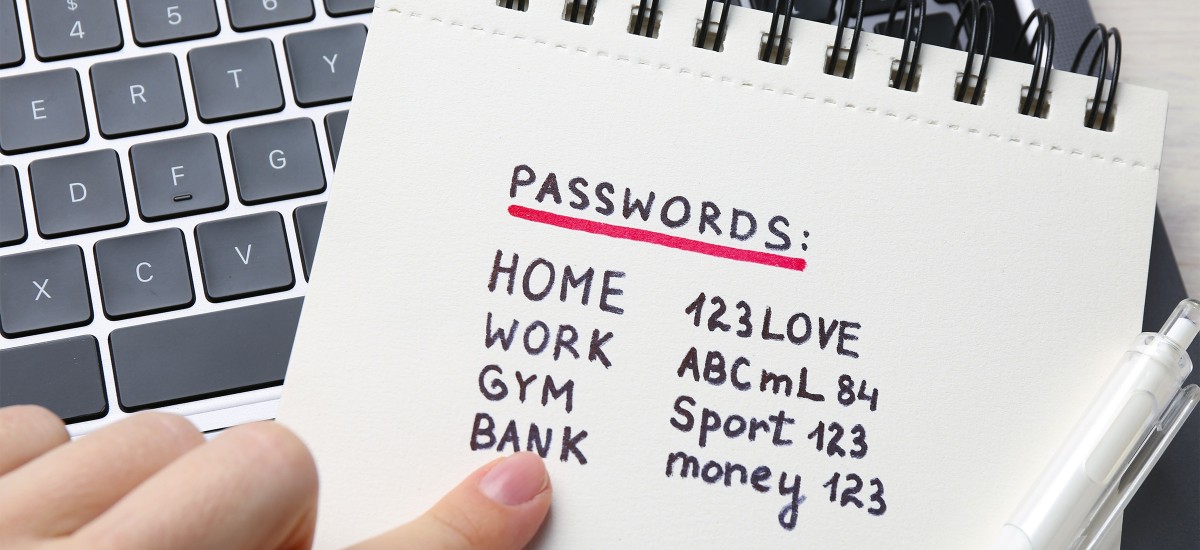 $ 4
5
E R T Y
D F G
X C V
PASSWORDS:
HOME 123LOVE
WORK ABCmL84
GYM Sport 123
BANK money 123